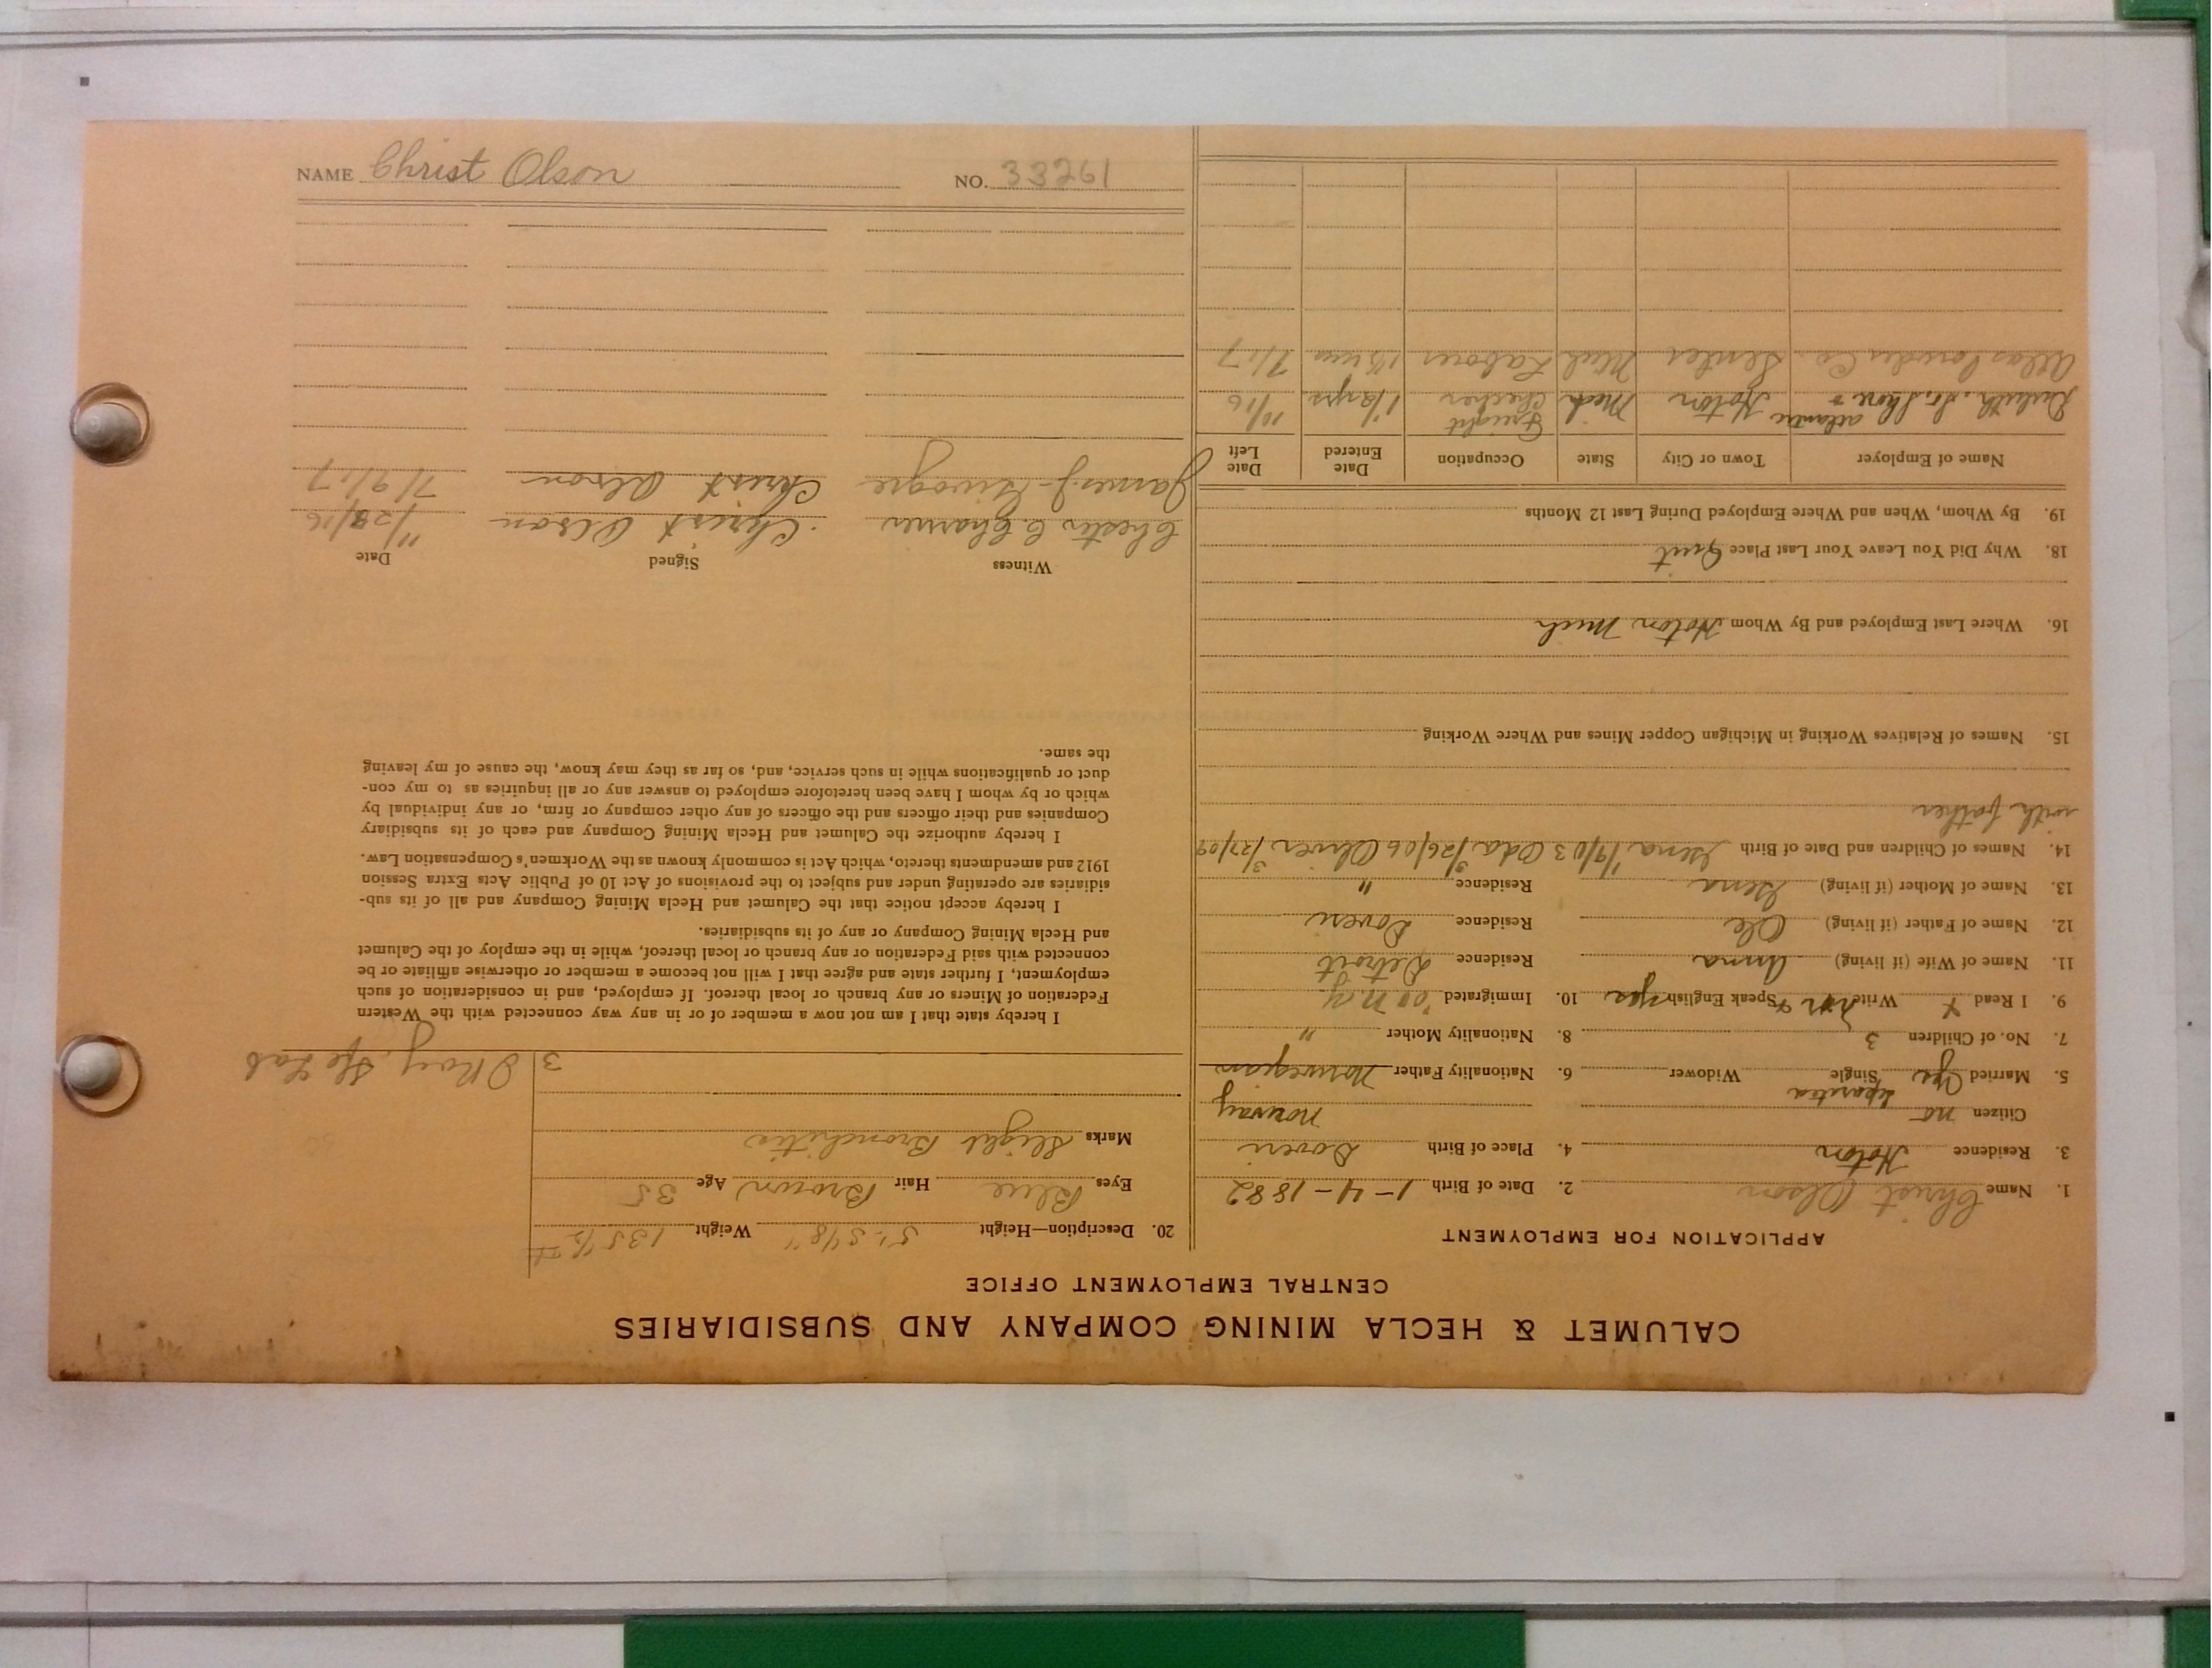 CALUMET & HECLA MINING COMPANY AND SUBSIDIARIES
CENTRAL EMPLOYMENT OFFICE
APPLICATION FOR EMPLOYMENT
1. Name Christ Olson 2. Date of Birth 1-4-1882
3. Residence Hoton 4. Place of Birth Doveri
Citizen no Norway
separated
5. Married Yes Single Widower 6. Nationality Father Norwegian
7. No. of Children 3 8. Nationality Mother "
9. I Read Write Speak English yes 10. Immigrated '00 N.Y.
11. Name of Wife (if living) Anna Residence Detroit
12. Name of Father (if living) Ole Residence Doveri
13. Name of Mother (if living) Gena Residence "
14. Names of Children and Date of Birth Gena 1/9/03 Oda 3/26/06 Oliver 3/27/09
with father
15. Names of Relatives Working in Michigan Copper Mines and Where Working
16. Where Last Employed and By Whom Hoton Mich
18. Why Did You Leave Your Last Place Quit
19. By Whom, When and Where Employed During Last 12 Months
Name of Employer Town or City State Occupation Date Entered Date Left
Duluth So. Shore & Atlantic Hoton Mich Freight Checker 1 1/2 yrs 10/16
Atlas Powder Co. Senter Mich Laborer 7/17
20. Description—Height 5'-5 1/8" Weight 135 1/2
Eyes Blue Hair Brown Age 35
Marks Slight Bronchitis
3 Okay Lab
I hereby state that I am not now a member of or in any way connected with the Western
Federation of Miners or any branch or local thereof. If employed, and in consideration of such
employment, I further state and agree that I will not become a member or otherwise affiliate or be
connected with said Federation or any branch or local thereof, while in the employ of the Calumet
and Hecla Mining Company or any of its subsidiaries.
I hereby accept notice that the Calumet and Hecla Mining Company and all of its sub-
sidiaries are operating under and subject to the provisions of Act 10 of Public Acts Extra Session
1912 and amendments thereto, which Act is commonly known as the Workmen's Compensation Law.
I hereby authorize the Calumet and Hecla Mining Company and each of its subsidiary
Companies and their officers and the officers of any other company or firm, or any individual by
which or by whom I have been heretofore employed to answer any or all inquiries as to my con-
duct or qualifications while in such service, and, so far as they may know, the cause of my leaving
the same.
Witness Signed Date
Chester C. Christ Olson 11/28/16
James J. Christ Olson 7/9/17
NAME Christ Olson NO. 33261